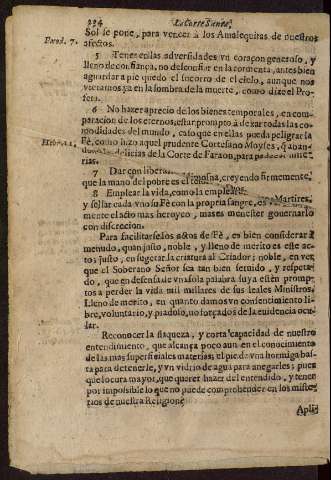 234 La Corte Santa,
Sol se pone, para vencer à los Amalequitas de nuestros
Exod. 7. afectos.
5 Tener en las adversidades vn coraçon generoso, y
lleno de confiança, no desconfiar en la tormenta, antes bien
aguardar a pie quedo el socorro de el cielo, aunque nos
vieramos ya en la sombra de la muerte, como dize el Pro-
feta.
6 No hazer aprecio de los bienes temporales, en com-
paracion de los eternos, estar prompto à dexar todas las co-
modidades del mundo, caso que en ellas pueda peligrar la
Hebr. 11. Fè, como hizo aquel prudente Cortesano Moyses, quan-
do las delicias de la Corte de Faraon, para
rias.
7 Dar con libera limosna, creyendo firmemente,
que la mano del pobre es el
8 Emplear la vida, como la emplearon Martires,
y sellar cada vno su Fè con la propria sangre, es
mente el acto mas heroyco, mas es menester governarlo
con discrecion.
Para facilitarse los actos de Fè, es bien considerar à
menudo, quan justo, noble, y lleno de merito es este ac-
to: justo, en sugetar la criatura al Criador; noble, en ver
que el Soberano Señor sea tan bien servido, y respeta-
do, que en defensa de vna sola palabra suya estèn promp-
tos a perder la vida mil millares de sus leales Ministros.
Lleno de merito, en quanto damos vn consentimiento li-
bre, voluntario, y piadoso, no forçados de la euidencia ocu-
lar.
Reconocer la flaqueza, y corta capacidad de nuestro
entendimiento, que alcança poco aun en el conocimiento
de las mas superficiales materias; el pie de vna hormiga bas-
ta para detenerle, y vn vidrio de agua para anegarle; pues
que locura mayor, que querer hazer del entendido, y tener
por imposible lo que no puede comprehender en los miste-
rios de nuestra Religion?
Apli-